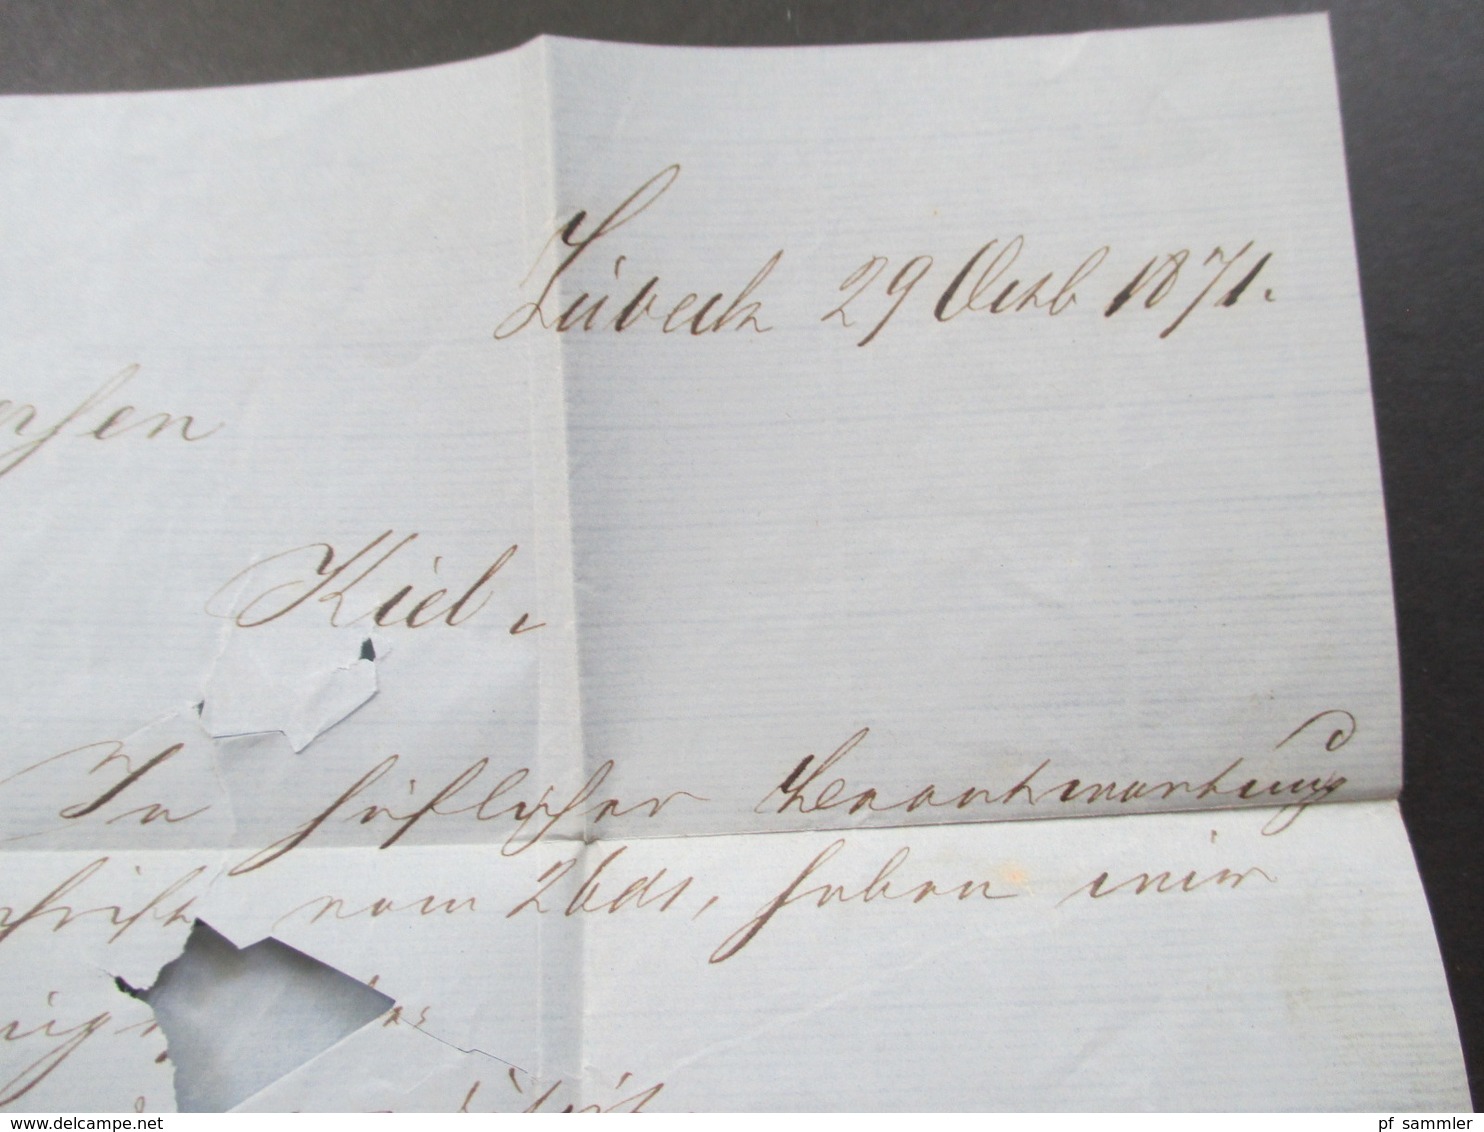 Lübeck 29 Octb 1871.
ersen
Kiel.
In höflicher Beantwortung
schrift vom 26 ds, haben wir
delcampe.net
pf_sammler